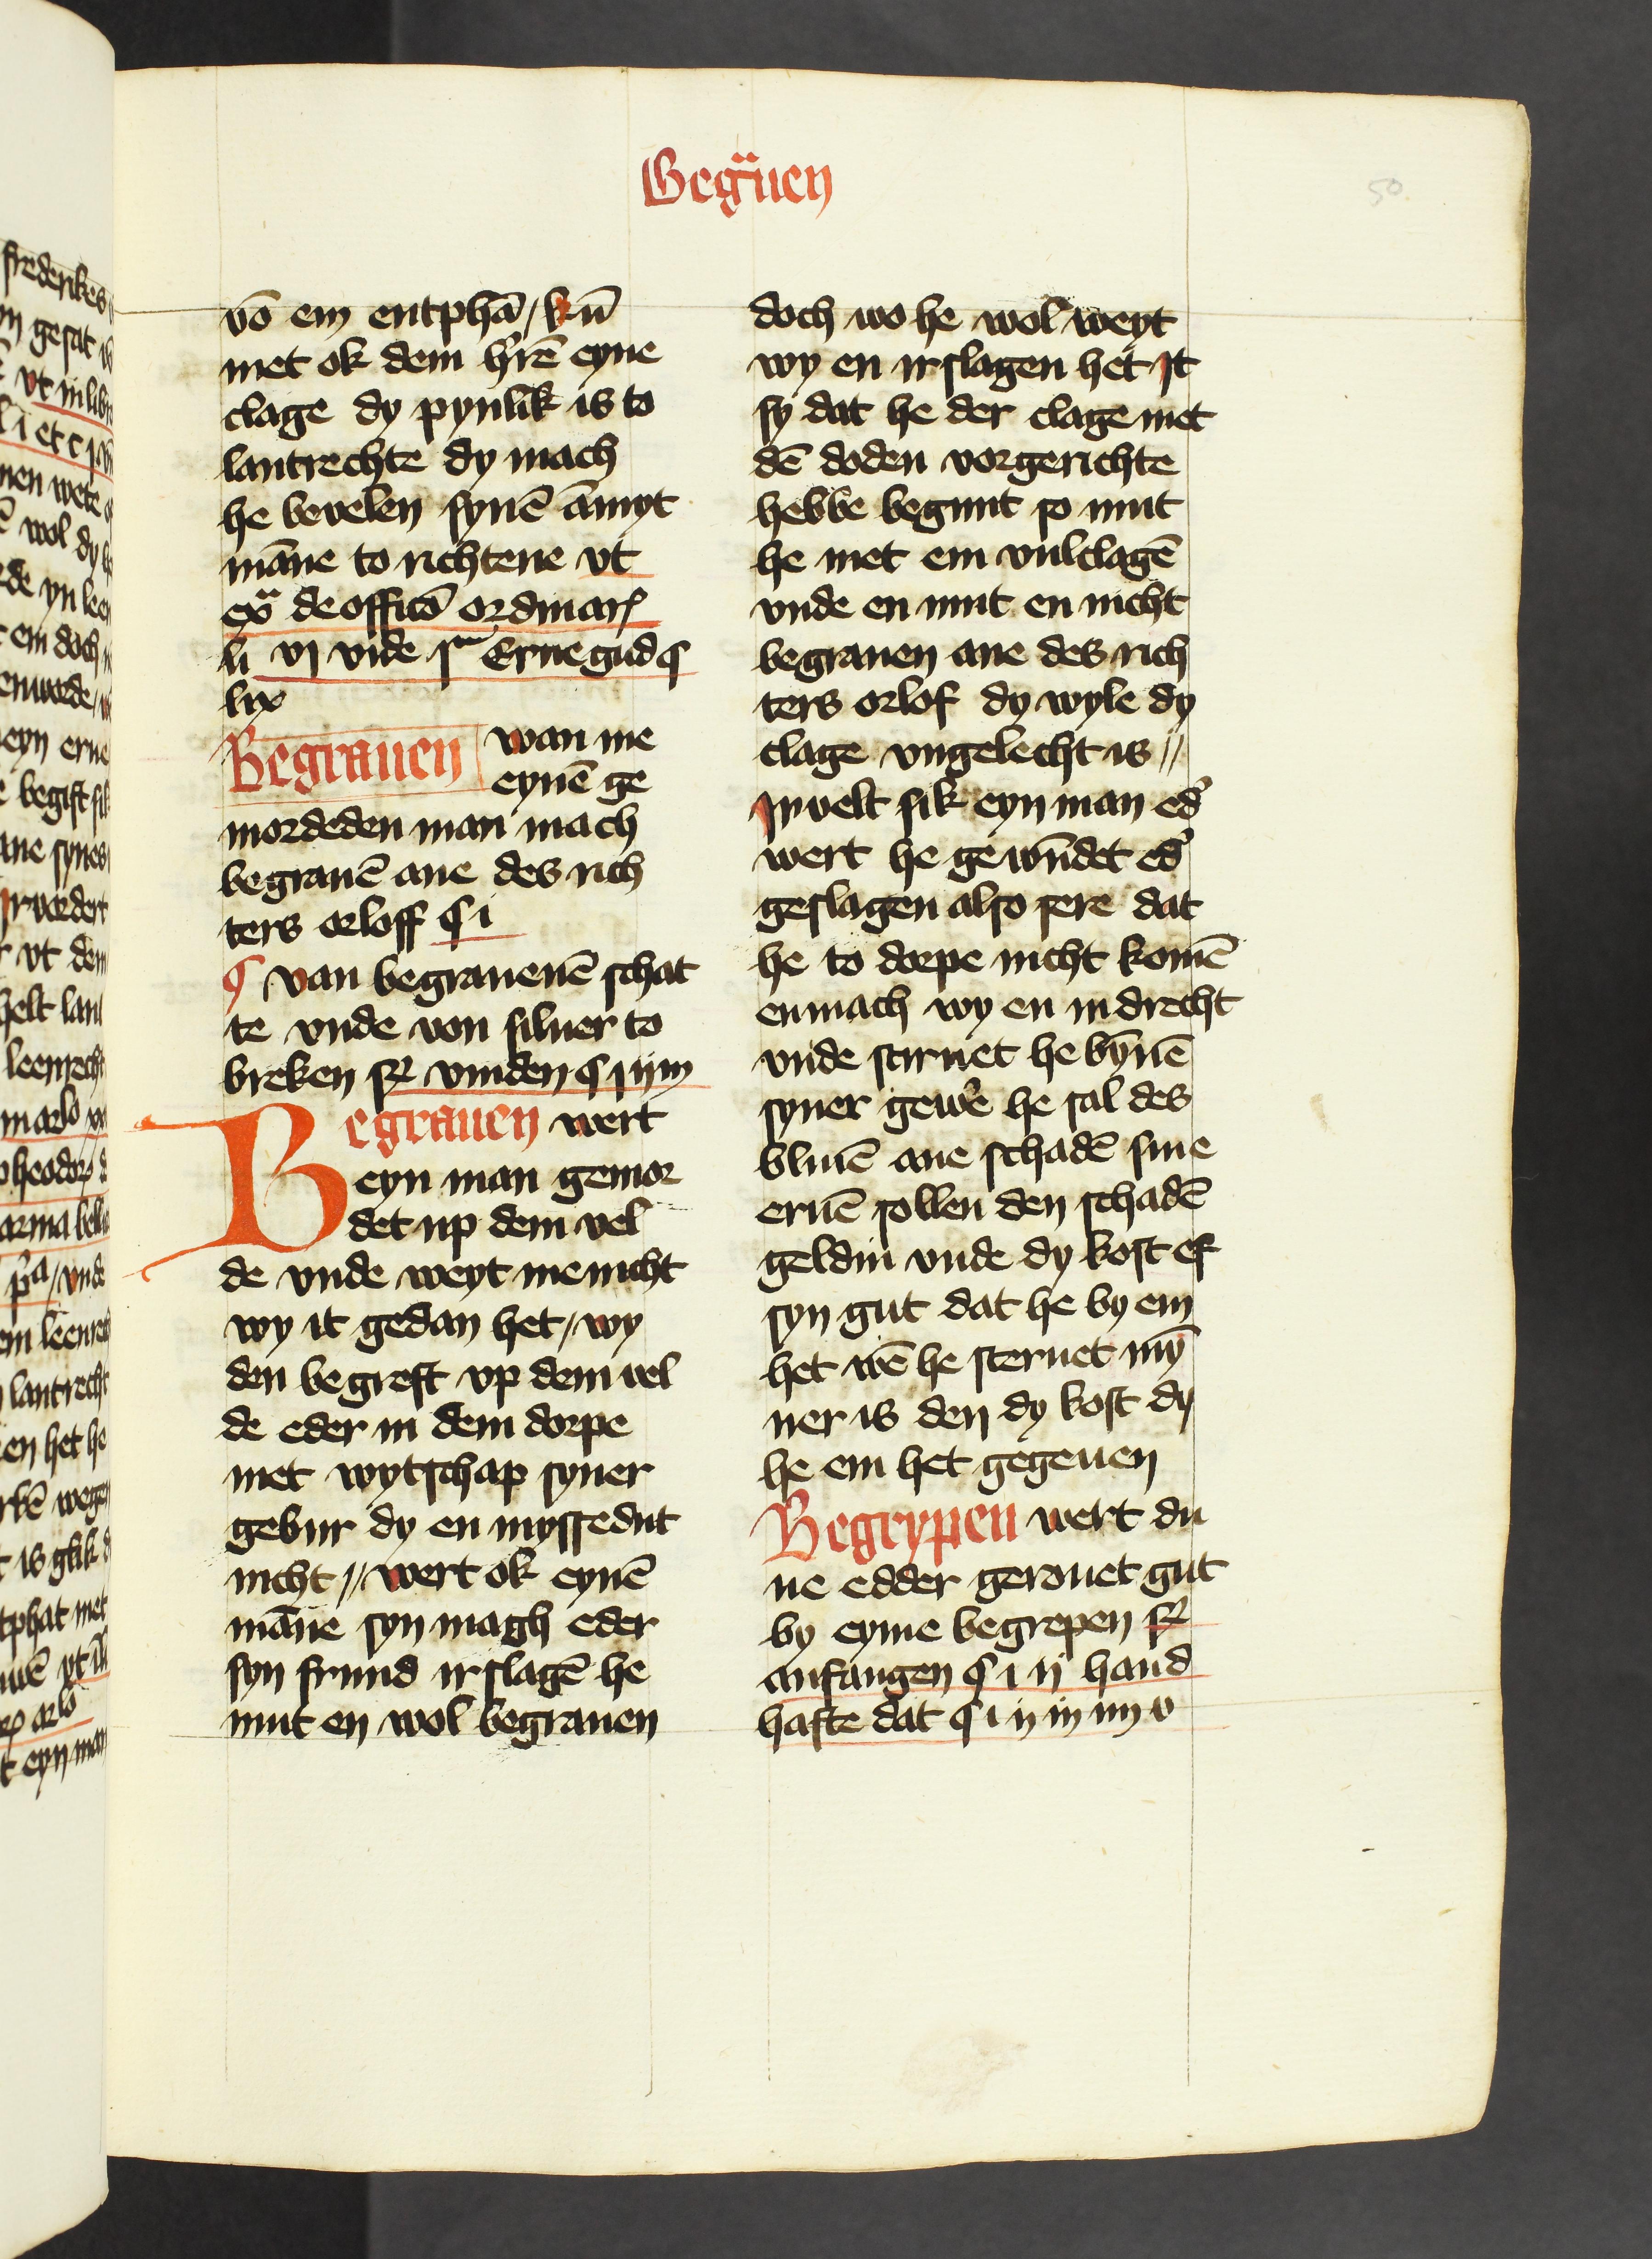 Begͣuen
50
vō em entphā / kū
met ok dem hrē eyne
clage dy pynlik is to
lantrechte dy mach
he bevelen synē āmyt
māne to richtene vt
exͣ de officō ordinar
li vj vnde Erue gud §
lix
Begrauen wan me
eynē ge
mordeden man mach
begrauē ane des rich
ters orloff § i
van begrauenē schat
te vnde von siluer to
breken vinden §
Begrauen wert
eyn man gemor
det up dem vel
de vnde weyt me nicht
wy it gedan het / wy
den begreft vp dem vel
de eder in dem dorpe
met wytschap syner
gebur dy en myssedut
nicht // wert ok eynē
māne syn magh eder
syn frund irslagē he
mut en wol begrauen
doch wo he wol weyt
wy en irslagen het it
sy dat he der clage met
dē doden vorgerichte
hebbe begunt so mut
he met em vulclagē
vnde en mut en nicht
begrauen ane des rich
ters orlof dy wyle dy
clage vngelecht is //
Irvelt sik eyn man ed̓
wert he gewūdet ed̓
geslagen also sere dat
he to dorpe nicht komē
enmach wy en indrecht
vnde stiruet he bynē
syner gewe̓ he sal des
bliuē ane schadē sine
eruē sollen den schadē
geldin vnde dy kost ef
syn gut dat he by em
het wē he steruet mȳ
ner is den dy kost dy
he em het gegeuen
Begrypen wert du
ue edder gerouet gut
by eyme begrepen
anfangen § i ij hand
hafte dat § i ij iij iiij v